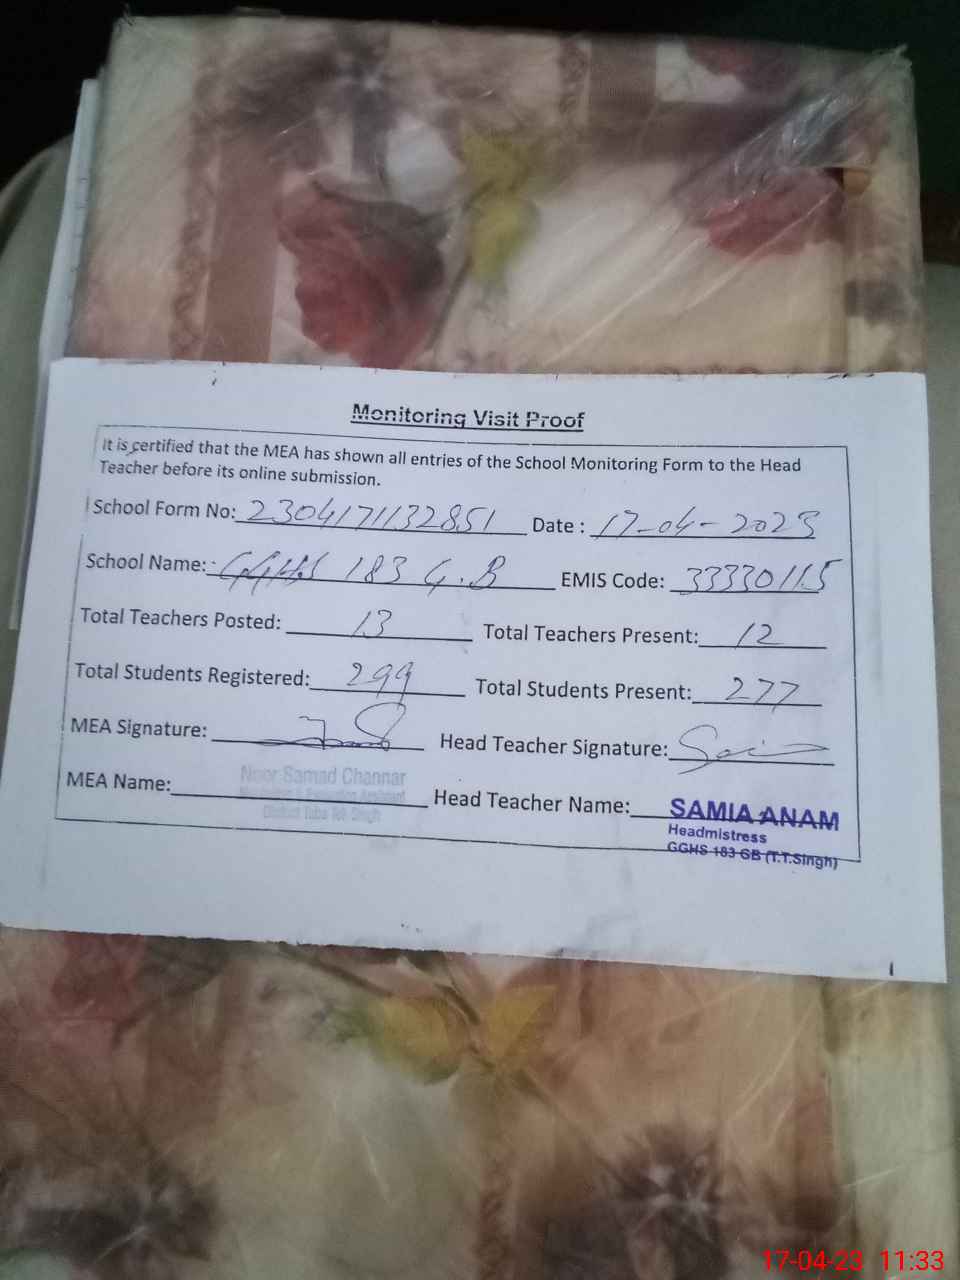 Monitoring Visit Proof
It is certified that the MEA has shown all entries of the School Monitoring Form to the Head
Teacher before its online submission.
School Form No: 2304171132851 Date : 17-04-2023
School Name: GGHS 183 G.B EMIS Code: 33330115
Total Teachers Posted: 13 Total Teachers Present: 12
Total Students Registered: 299 Total Students Present: 277
MEA Signature: Head Teacher Signature:
MEA Name: Noor Samad Channar Head Teacher Name: SAMIA ANAM
Monitoring & Evaluation Assistant Headmistress
District Toba Tek Singh GGHS 183 GB (T.T.Singh)
17-04-23 11:33